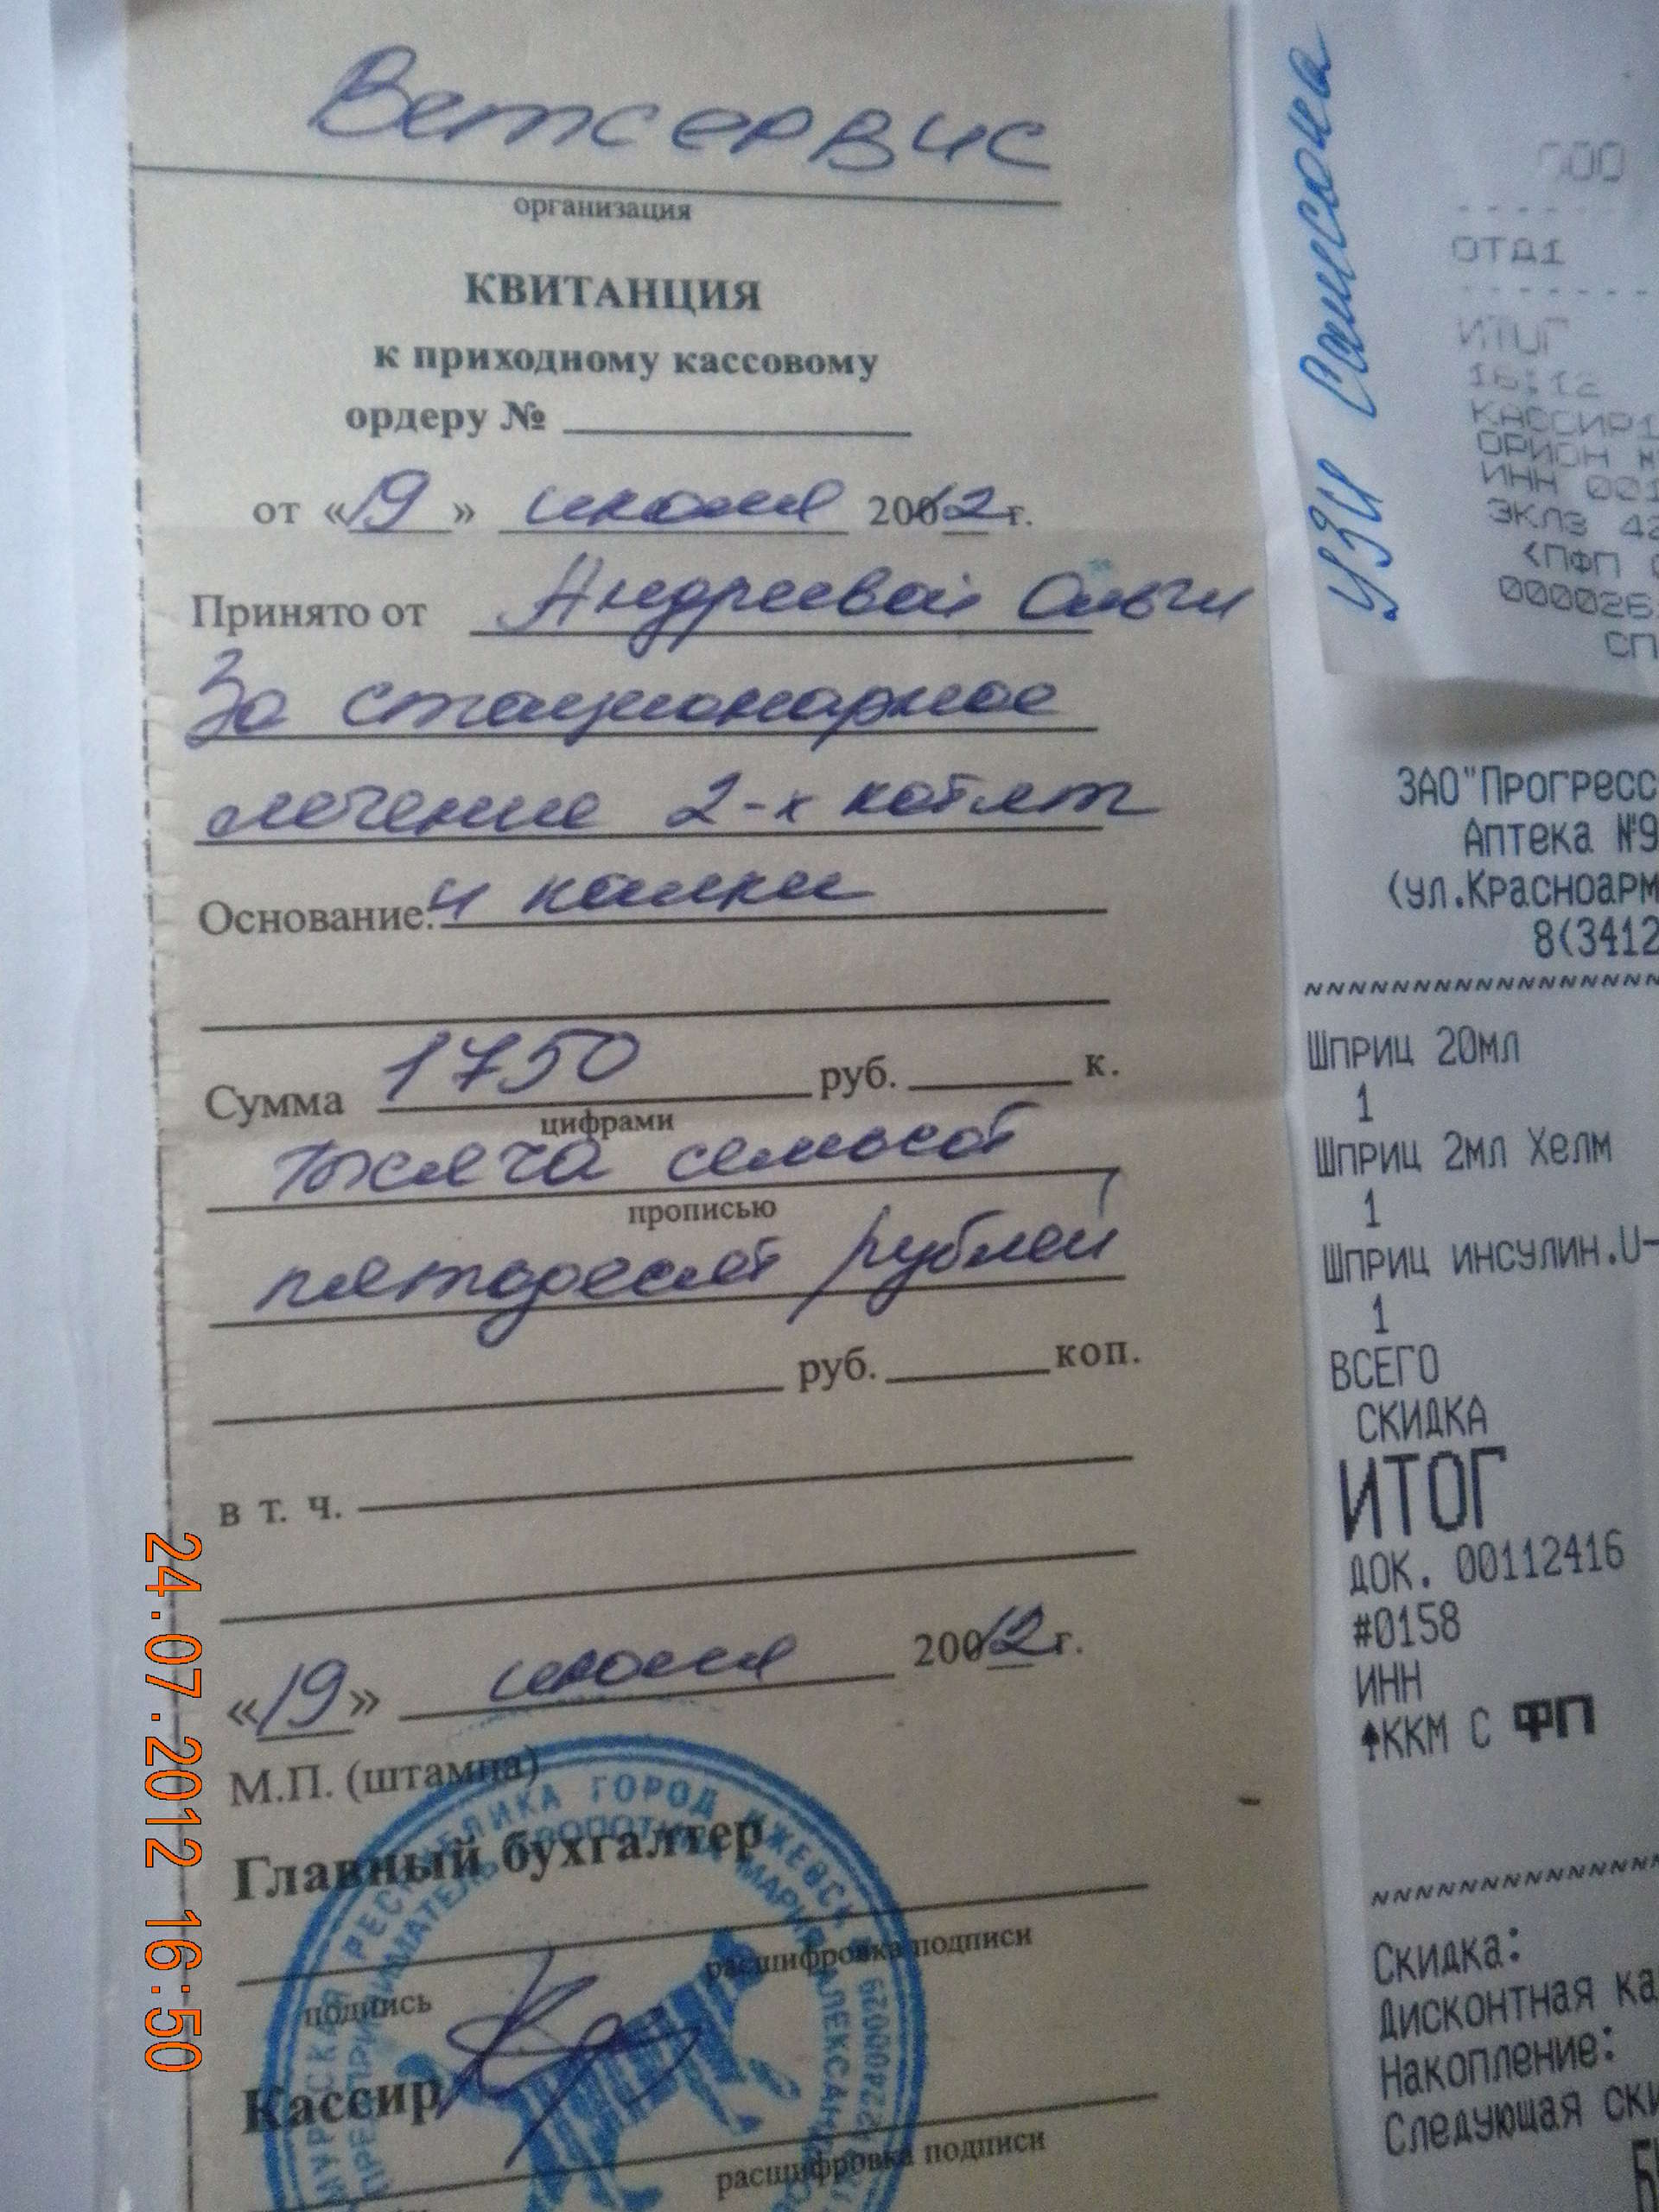 Ветсервис
организация
КВИТАНЦИЯ
к приходному кассовому
ордеру №
от «19» июля 20012г.
Принято от Андреевой Ольги
За стационарное
лечение 2-х котят
Основание: и кошки
Сумма 1750 руб. к.
цифрами
тысяча семьсот
прописью
пятьдесят рублей
руб. коп.
в т. ч.
«19» июля 20012г.
М.П. (штампа)
Главный бухгалтер
подпись
расшифровка подписи
Кассир
расшифровка подписи
РЕСПУБЛИКА ГОРОД ИЖЕВСК
24.07.2012 16:50
УЗИ Самсона
ООО
ОТД1
ИТОГ
16:12
КАССИР1
ОРИОН
ИНН 001
ЭКЛЗ 42
<ПФП
000026
СП
ЗАО"Прогресс
Аптека №9
(ул.Красноарм
8(3412
Шприц 20мл
1
Шприц 2мл Хелм
1
Шприц инсулин.U-
1
ВСЕГО
СКИДКА
ИТОГ
ДОК. 00112416
#0158
ИНН
ККМ С ФП
Скидка:
Дисконтная ка
Накопление:
Следующая ски